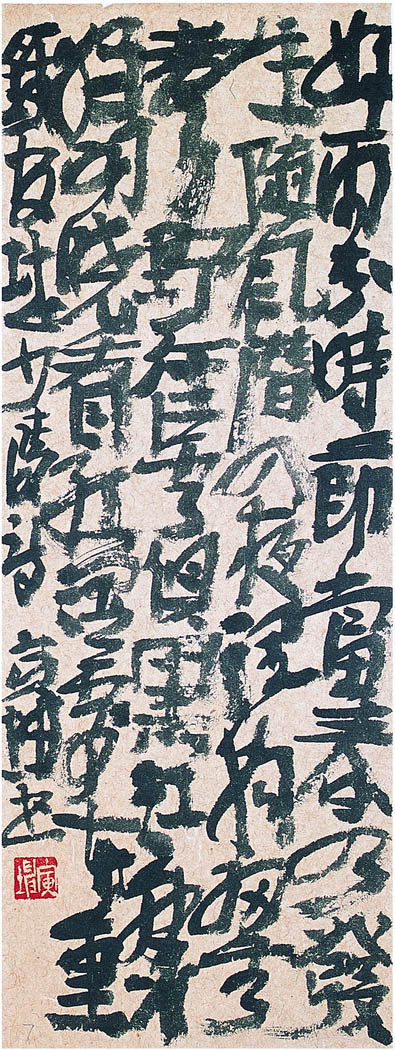 好雨知時節當春乃發
生隨風潛入夜潤物細無
聲野徑雲俱黑江船
獨明曉看紅濕處花重
錦官城少陵詩 書